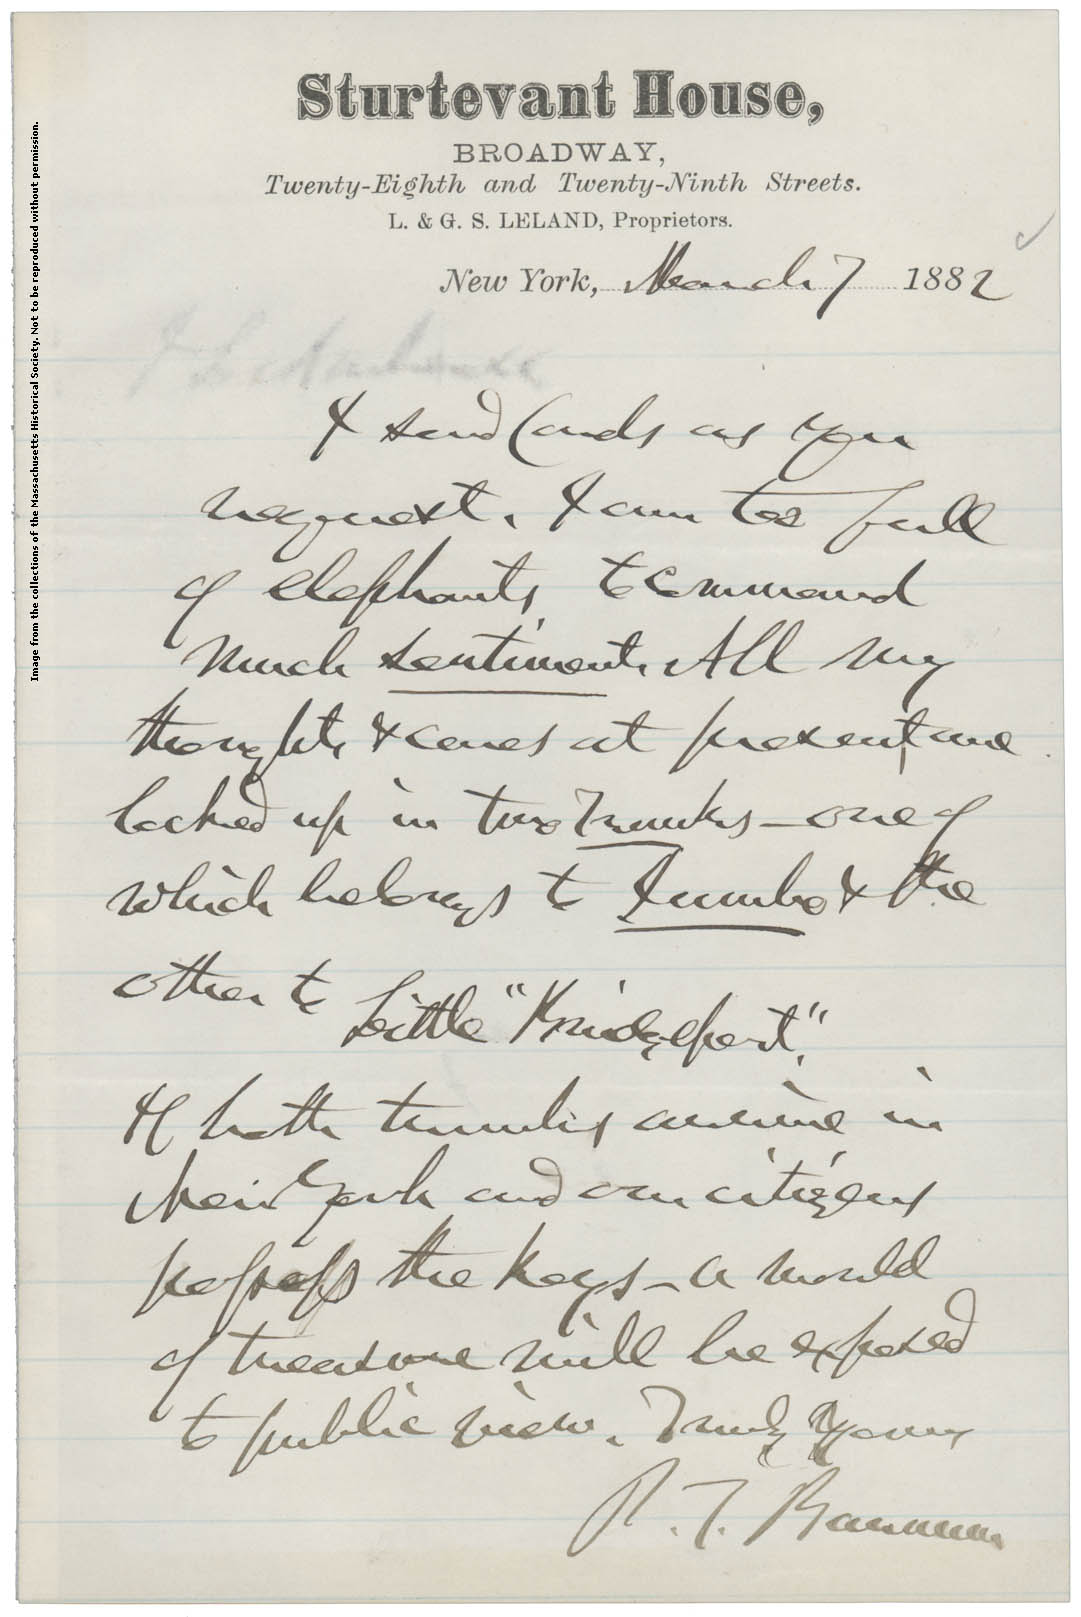 Sturtevant House,
BROADWAY,
Twenty-Eighth and Twenty-Ninth Streets.
L. & G. S. LELAND, Proprietors.
New York, March 7 1882
I send Cards as you
request. I am too full
of elephants to command
much sentiment. All my
thoughts & cares at present are
locked up in two Trunks – one of
which belongs to Jumbo & the
other to Little "Bridgeport".
If both trunks arrive in
New York and our citizens
possess the keys – a world
of treasure will be exposed
to public view. Truly Yours
P. T. Barnum
Image from the collections of the Massachusetts Historical Society. Not to be reproduced without permission.